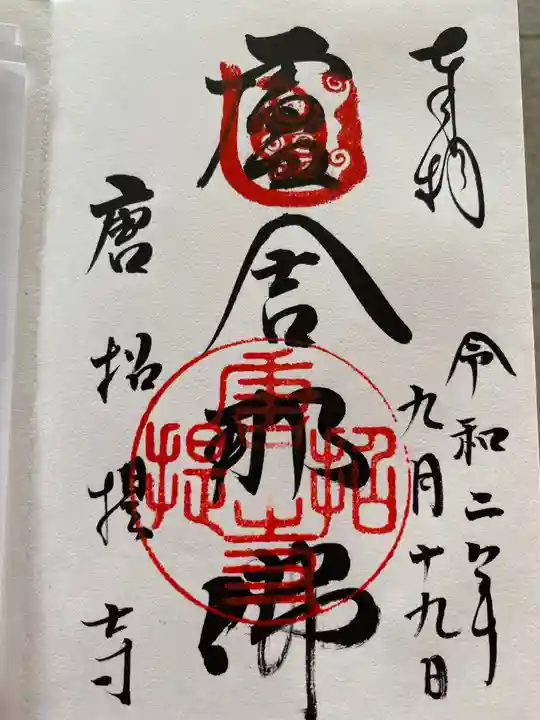 奉拝
令和二年
九月十九日
盧舎那佛
唐招提寺
唐招提寺